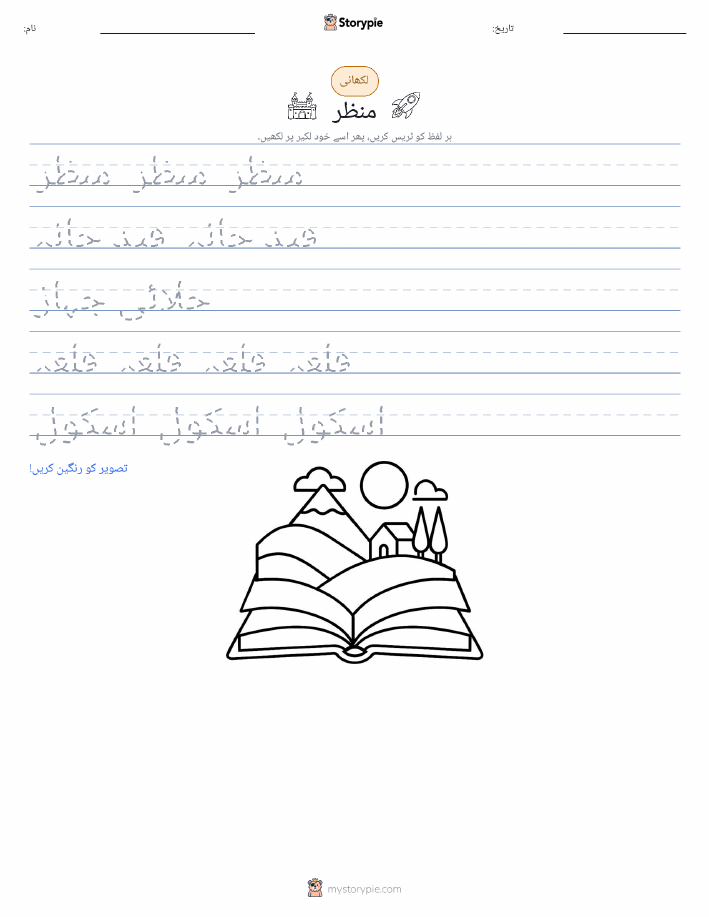 نام:
Storypie
تاریخ:
لکھائی
منظر
ہر لفظ کو ٹریس کریں، پھر اسے خود لکیر پر لکھیں۔
منظر منظر منظر
قید خانہ قید خانہ
خلائی جہاز
قلعہ قلعہ قلعہ قلعہ
اسکول اسکول اسکول
تصویر کو رنگین کریں!
mystorypie.com